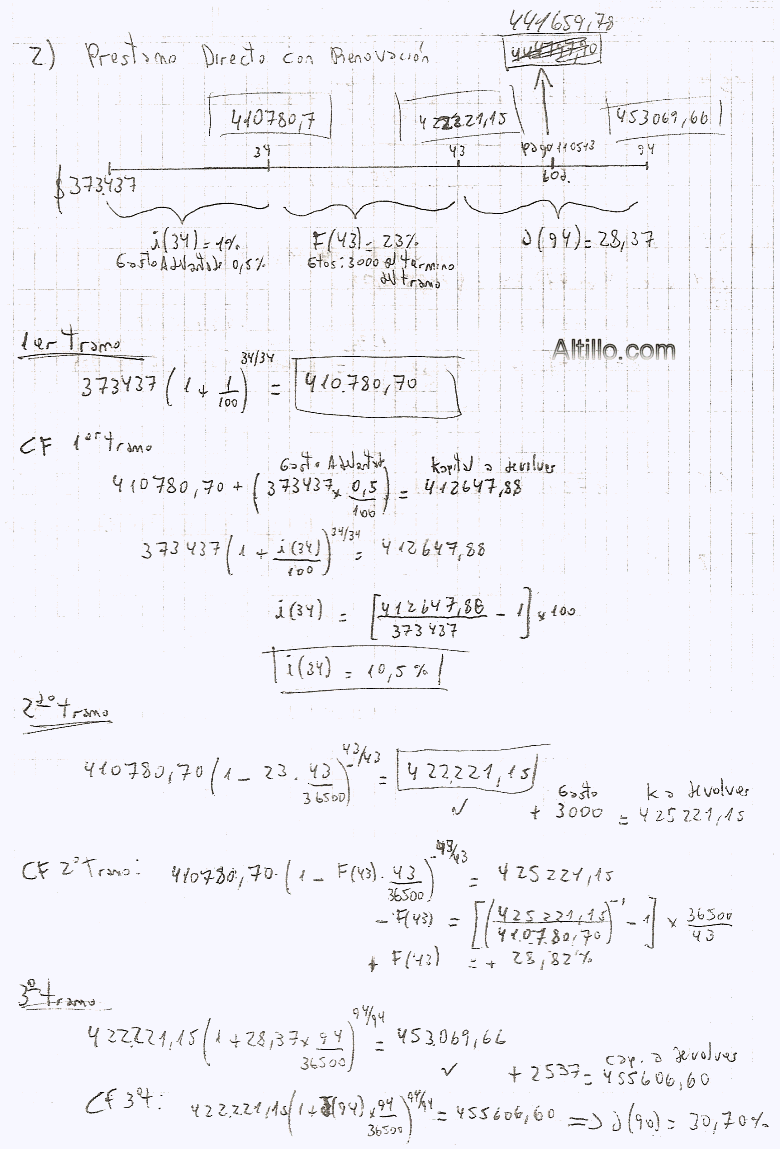 441659,78
2) Prestamo Directo con Renovación
410780,7
422221,15
453069,66
34
43
pago 110513
94
$ 373.437
60d.
i(34) = 1%
F(43) = 23%
J(94) = 28,37
Gasto Adelantado 0,5%
Gtos: 3000 al termino
del tramo
1er Tramo
Altillo.com
373437 ( 1 + 1/100 )^34/34 = 410.780,70
CF 1er tramo
Gasto Adelantado
Kapital a devolver
410780,70 + ( 373437 x 0,5/100 ) = 412647,88
373437 ( 1 + i(34)/100 )^34/34 = 412647,88
i(34) = [ 412647,88/373437 - 1 ] x 100
i(34) = 10,5 %
2do tramo
410780,70 ( 1 - 23 . 43/36500 )^-43/43 = 422221,15
Gasto K a devolver
✓ + 3000 = 425221,15
CF 2° Tramo: 410780,70 . ( 1 - F(43) . 43/36500 )^-43/43 = 425221,15
- F(43) = [ ( 425221,15/410780,70 )^-1 - 1 ] x 36500/43
+ F(43) = + 28,82%
3° tramo
422221,15 ( 1 + 28,37 x 94/36500 )^94/94 = 453.069,66
cap. a devolver
✓ + 2537 = 455606,60
CF 3°t: 422221,15 ( 1 + J(94) x 94/36500 )^94/94 = 455606,60 => J(90) = 30,70%